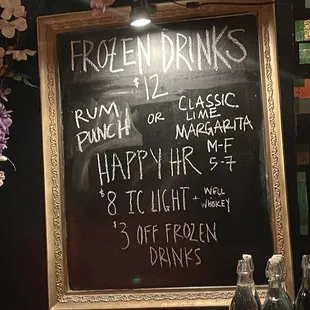 FROZEN DRINKS
$12
RUM PUNCH OR CLASSIC LIME MARGARITA
HAPPY HR M-F 5-7
$8 IC LIGHT + WELL WHISKEY
$3 OFF FROZEN
DRINKS